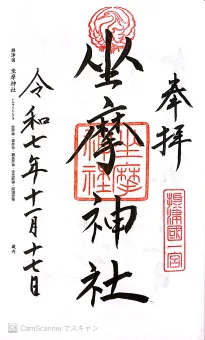 奉拝
摂津國一之宮
坐摩神社
坐摩神社
令和七年十一月十七日
摂津国 坐摩神社
CamScanner でスキャン